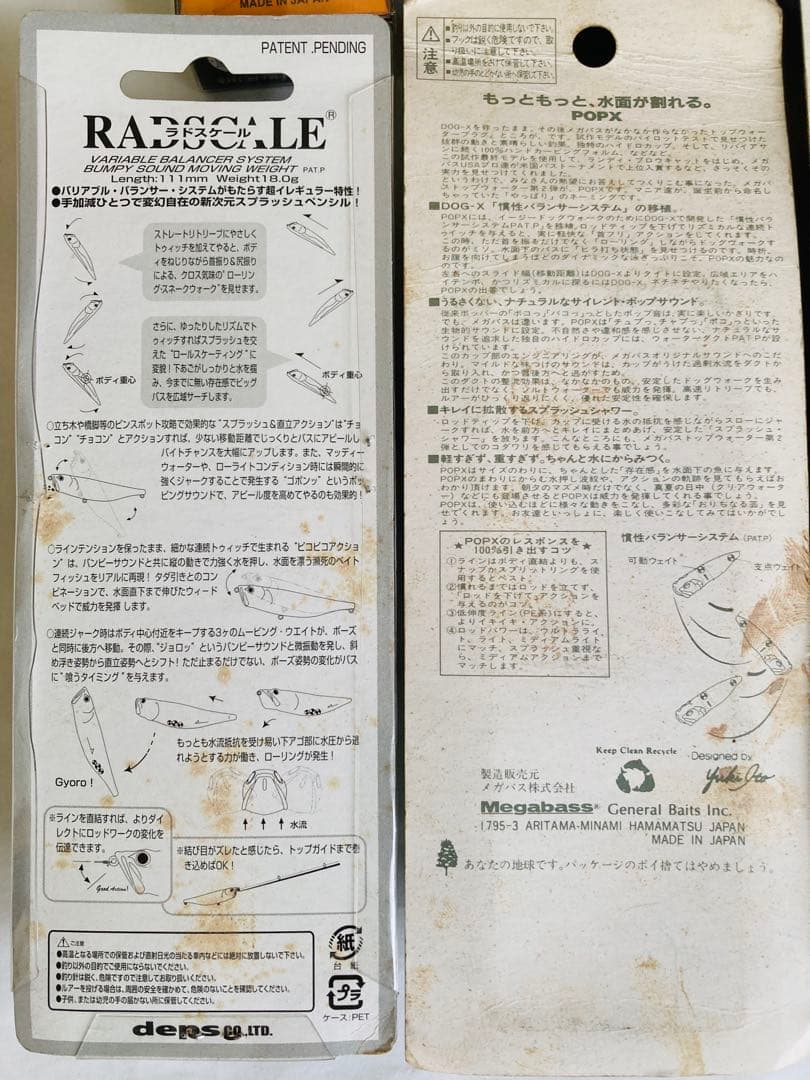 MADE IN JAPAN
PATENT .PENDING
RADSCALE®
ラドスケール
VARIABLE BALANCER SYSTEM
BUMPY SOUND MOVING WEIGHT PAT.P
Length:111mm Weight18.0g
●バリアブル・バランサー・システムがもたらす超イレギュラー特性!
●手加減ひとつで変幻自在の新次元スプラッシュペンシル!
ストレートリトリーブにやさしく
トゥィッチを加えてやると、ボデ
ィをねじりながら首振り&尻振り
による、クロス気味の"ローリン
グ・スネークウォーク"を見せます。
さらに、ゆったりしたリズムでト
ゥィッチすればスプラッシュを交
えた"ロールスケーティング"に
変貌!下あごがしっかりと水を掴
み、今までに無い存在感でビッグ
バスを広域サーチします。
ボディ重心
ボディ重心
○立ち木や橋脚等のピンスポット攻略で効果的な"スプラッシュ&直立アクション"は"チョ
コン""チョコン"とアクションすれば、少ない移動距離でじっくりとバスにアピールし
バイトチャンスを大幅にアップします。また、マッディー
ウォーターや、ローライトコンディション時には瞬間的に
強くジャークすることで発生する"ゴボンッ"というポッ
ピングサウンドで、アピール度を高めてやるのも効果的!
○ラインテンションを保ったまま、細かな連続トゥィッチで生まれる"ピコピコアクショ
ン"は、バンピーサウンドと共に縦の動きで力強く水を押し、水面を漂う瀕死のベイト
フィッシュをリアルに再現!タダ引きとのコン
ビネーションで、水面直下まで伸びたウィード
ベッドで威力を発揮します。
○連続ジャーク時はボディ中心付近をキープする3ヶのムービング・ウエイトが、ポーズ
と同時に後方へ移動。その際、"ジョロッ"というバンピーサウンドと微振動を発し、斜
め浮き姿勢から直立姿勢へとシフト!ただ止まるだけでない、ポーズ姿勢の変化がバス
に"喰うタイミング"を与えます。
もっとも水流抵抗を受け易い下アゴ部に水圧から逃
れようとする力が働き、ローリングが発生!
Gyoro!
水流
※ラインを直結すれば、よりダイ
レクトにロッドワークの変化を
伝達できます。
Good Action!
※結び目がズレたと感じたら、トップガイドまで巻
き込めばOK!
ご注意
●高温となる場所での保管および直射日光の当たる車内などには絶対に放置しないで下さい。
●釣り以外の目的でご使用にならないでください。
●釣り針は鋭く、危険ですので注意してお取り扱いください。
●ルアーを投げる場合は、周囲の安全を確かめて、危険のないことを確認してください。
●子供、または幼児の手の届かない所に保管してください。
紙
台紙
プラ
ケース:PET
deps CO.,LTD.
注意
■釣り以外の目的に使用しないで下さい。
■フックは鋭く危険ですので、取
り扱いに注意して下さい。
■高温場所をさけて保管して下さい。
■幼児の手のとどかない所へ保管して下さい。
もっともっと、水面が割れる。
POPX
DOG-Xを作ったまま、その後メガバスがなかなか作らなかったトップウォー
タープラグ。ところが、です。試作モデルのパイロットテストで見せつけた
抜群の動きと素晴らしい釣果。独特のハイドロカップ。そして、リバイアサ
ンに続く100%ハンドカービングフォルム、などなど。
この試作最終モデルを使用して、ランディ・ブロウキャットをはじめ、メガ
バスUSAプロ達が米国バストーナメントで上位入賞するなど、さっそくその
実力を見せつけてくれました。
というわけで、みなさんの熱望にお答えしてつくりこむ事になった、メガバ
ストップウォーター第2弾が、POPXです。マニア達が、誕生前から命名し
ちゃっていた「やっぱり」のネーミングです。
■DOG-X「慣性バランサーシステム」の移植。
POPXには、イージードッグウォークのためにDOG-Xで開発した「慣性バラ
ンサーシステムPAT.P」を移植。ロッドティップを下げてリズミカルな連続ト
ゥイッチを与えると、実に軽快な「首フリ」アクションをしてくれます。
この時、ただ首を振るだけでなく「ローリング」しながらドッグウォークす
るのがミソ。水面下のバスに「ヒラ打ち状態」を見せつけるのです。時折、
お腹を向けてしまうほどのダイナミックな泳ぎっぷりこそ、POPXの魅力なの
です。
左右へのスライド幅(移動距離)はDOG-Xよりタイトに設定。広域エリアをハ
イテンポ、かつリズミカルに探るにはDOG-X、ネチネチやりたくなったら、
POPXの出番でしょう。
■うるさくない、ナチュラルなサイレント・ポップサウンド。
従来ポッパーの「ボコっ」「バコっ」っとしたポップ音は、実に楽しいかぎりです。
でも、メガバスは違います。POPXは「チュプっ、チャプっ」「ポコ」っといった
生物的サウンドに設定。不自然さや違和感を感じさせない、ナチュラルなサ
ウンドを追求した独自のハイドロカップには、ウォーターダクトPAT.Pが設
けられています。
このカップ部のエンジニアリングが、メガバスオリジナルサウンドへのこだ
わり。マイルドな味つけのサウンドは、カップがうけた過剰水流をダクトか
ら取り入れ、かつ背後方へと逃がすため。
このダクトの整流効果は、なかなかのもの。安定したドッグウォークを生み
出すだけでなく、ソルトウォーターでも威力を発揮。高速リトリーブでも、
ルアーがひっくり返りにくく、優れた安定性を確保します。
■キレイに拡散するスプラッシュシャワー。
ロッドティップを下げ、カップに受ける水の抵抗を感じながらスローにジャ
ークすれば、水を前方へとキレイにまとめあげ、安定した「スプラッシュ・
シャワー」を放ちます。こんなところにも、メガバストップウォーター第2
弾としてのコダワリを感じてもらえる事でしょう。
■軽すぎず、重すぎず。ちゃんと水にからみつく。
POPXはサイズのわりに、ちゃんとした「存在感」を水面下の魚に与えます。
POPXのまわりにからむ水押し波紋や、アクションの軌跡を見てもらえばお
わかり頂けます。朝夕のマズメ時だけでなく、真夏の日中(クリアウォータ
ー)などにも登場させるとPOPXは威力を発揮してくれる事でしょう。
POPXは、使い込むほどに様々な動きをこなし、多彩な「おりちなる芸」を見
せてくれます。お友達といっしょに、楽しく使いこなしてみてはいかがでし
ょう。
★POPXのレスポンスを★
100%引き出すコツ
①ラインはボディ直結よりも、ス
ナップかスプリットリングを使
用するとベスト。
②慣れるまではロッドを立てず、
「ロッドを下げて」アクションを
与えるのがコツ。
③低伸度ライン(PE系)にすると、
よりイキイキ・アクションに。
④ロッドパワーは、ウルトラライ
ト、ライト、ミディアムライト
にマッチ、スプラッシュ重視な
ら、ミディアムアクションまで
マッチします。
慣性バランサーシステム(PAT.P)
可動ウェイト
支点ウェイト
Keep Clean Recycle
Designed by
Yuki Ito
製造販売元
メガバス株式会社
Megabass® General Baits Inc.
1795-3 ARITAMA-MINAMI HAMAMATSU JAPAN
MADE IN JAPAN
あなたの地球です。パッケージのポイ捨てはやめましょう。